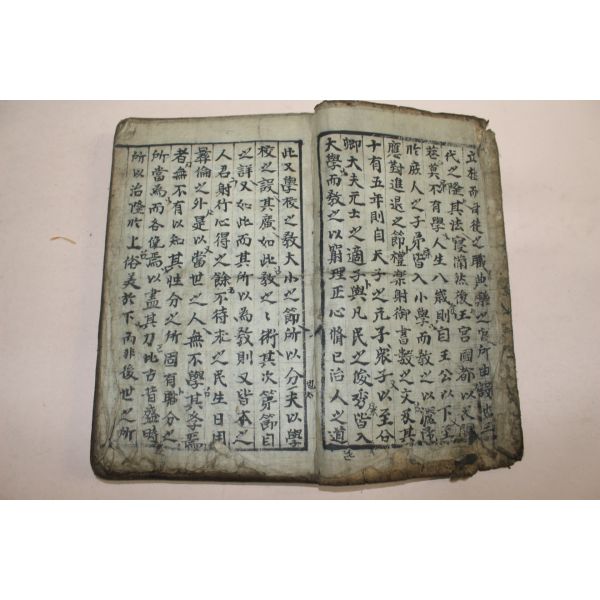 立極而司徒之職典樂之官所由設也三
代之隆其法寢備然後王宮國都以及閭
巷莫不有學人生八歲則自王公以下至
於庶人之子弟皆入小學而教之以灑掃
應對進退之節禮樂射御書數之文及其
十有五年則自天子之元子衆子以至公
卿大夫元士之適子與凡民之俊秀皆入
大學而教之以窮理正心脩已治人之道
此又學校之教大小之節所以分夫以學
校之設其廣如此教之之術其次第節目
之詳又如此而其所以為敎則又皆本之
人君躬行心得之餘不待求之民生日用
彛倫之外是以當世之人無不學其學焉
者無不有以知其性分之所固有職分之
所當為而各俛焉以盡其力此古昔盛時
所以治隆於上俗美於下而非後世之所